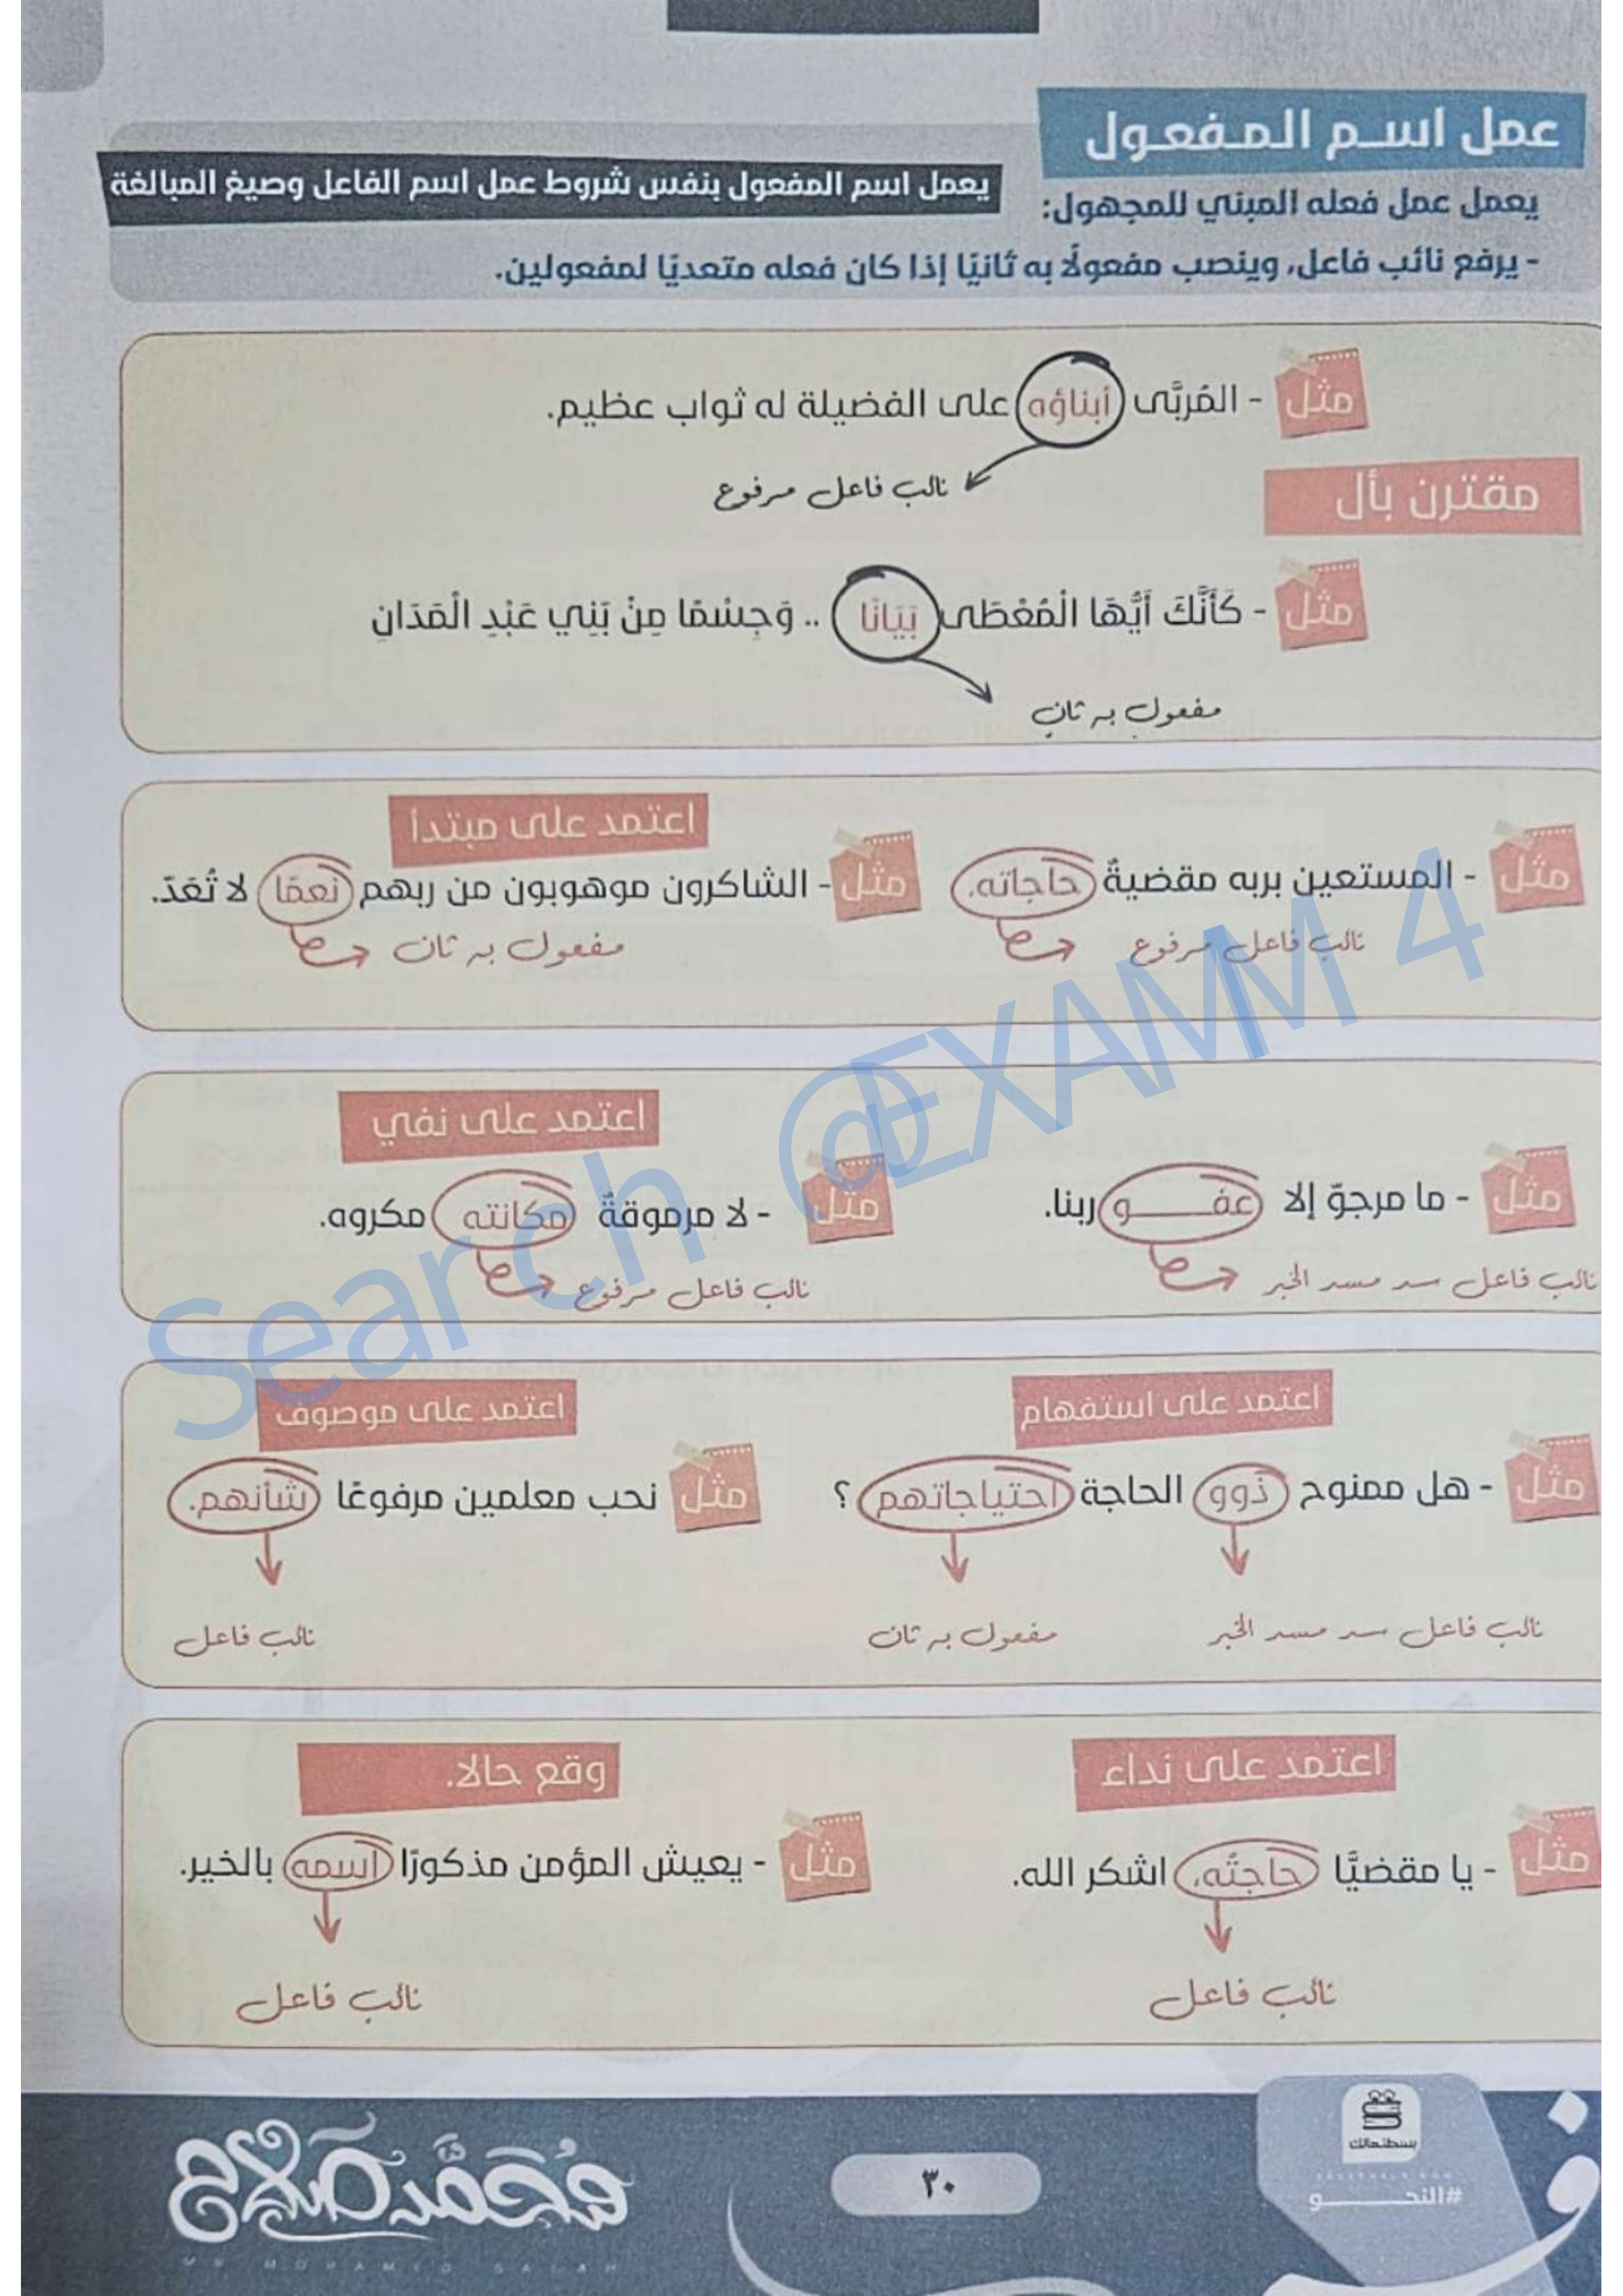 عمل اسم المفعول
يعمل اسم المفعول بنفس شروط عمل اسم الفاعل وصيغ المبالغة
يعمل عمل فعله المبني للمجهول:
- يرفع نائب فاعل، وينصب مفعولًا به ثانيًا إذا كان فعله متعديًا لمفعولين.
مثل - المُربَّى أبناؤه على الفضيلة له ثواب عظيم.
نائب فاعل مرفوع
مقترن بأل
مثل - كَأَنَّكَ أَيُّهَا الْمُعْطَى بَيَانًا .. وَجِسْمًا مِنْ بَنِي عَبْدِ الْمَدَانِ
مفعول به ثانٍ
اعتمد على مبتدأ
مثل - المستعين بربه مقضيةٌ حاجاته.
نائب فاعل مرفوع
مثل - الشاكرون موهوبون من ربهم نعمًا لا تُعَدّ.
مفعول به ثان
اعتمد على نفي
مثل - ما مرجوّ إلا عفـــو ربنا.
نائب فاعل سد مسد الخبر
مثل - لا مرموقةٌ مكانته مكروه.
نائب فاعل مرفوع
اعتمد على استفهام
مثل - هل ممنوح ذوو الحاجة احتياجاتهم ؟
نائب فاعل سد مسد الخبر
مفعول به ثان
اعتمد على موصوف
مثل نحب معلمين مرفوعًا شأنهم.
نائب فاعل
اعتمد على نداء
مثل - يا مقضيًّا حاجتُه، اشكر الله.
نائب فاعل
وقع حالا.
مثل - يعيش المؤمن مذكورًا اسمه بالخير.
نائب فاعل
Search @EXAMM 4
بسطتهالك
#النحـــو
٣٠
محمد صلاح
MR MOHAMED SALAH